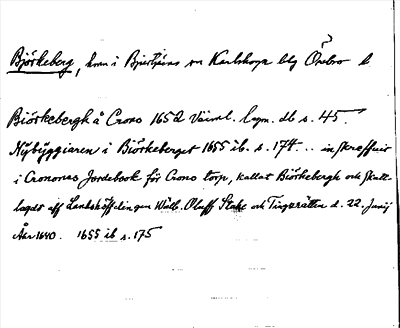 Björkeberg, hem i Bjurtjärns sn Karlskoga bg Örebro l
Biörkebergh å Crono 1652 Värml. lagm. db s. 45.
Nÿbÿggiaren i Biörkeberget 1655 ib. s. 174 ... inskreffuit
i Cronones Jordebook för Crono torp, kallat Biörkebergh och skatt-
lagdt aff Landzhöffdingen Wälb. Oluff Stake och Tingzrätten d. 22. Junij
Åhr 1640. 1655 ib s. 175